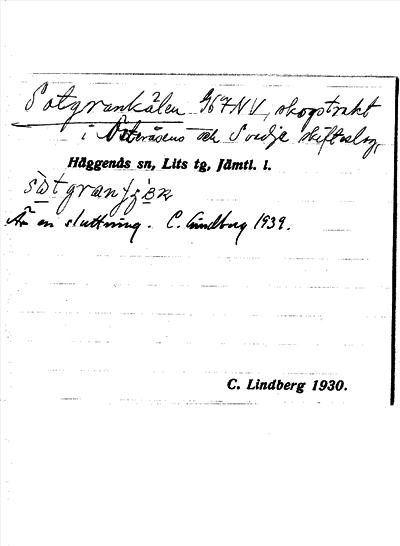 Sotgrankälen 967NV, skogstrakt
i Österåsens och Svedje skiftslag,
Häggenås sn, Lits tg, Jämtl. l.
Är en sluttning. C. Lindberg 1939.
C. Lindberg 1930.